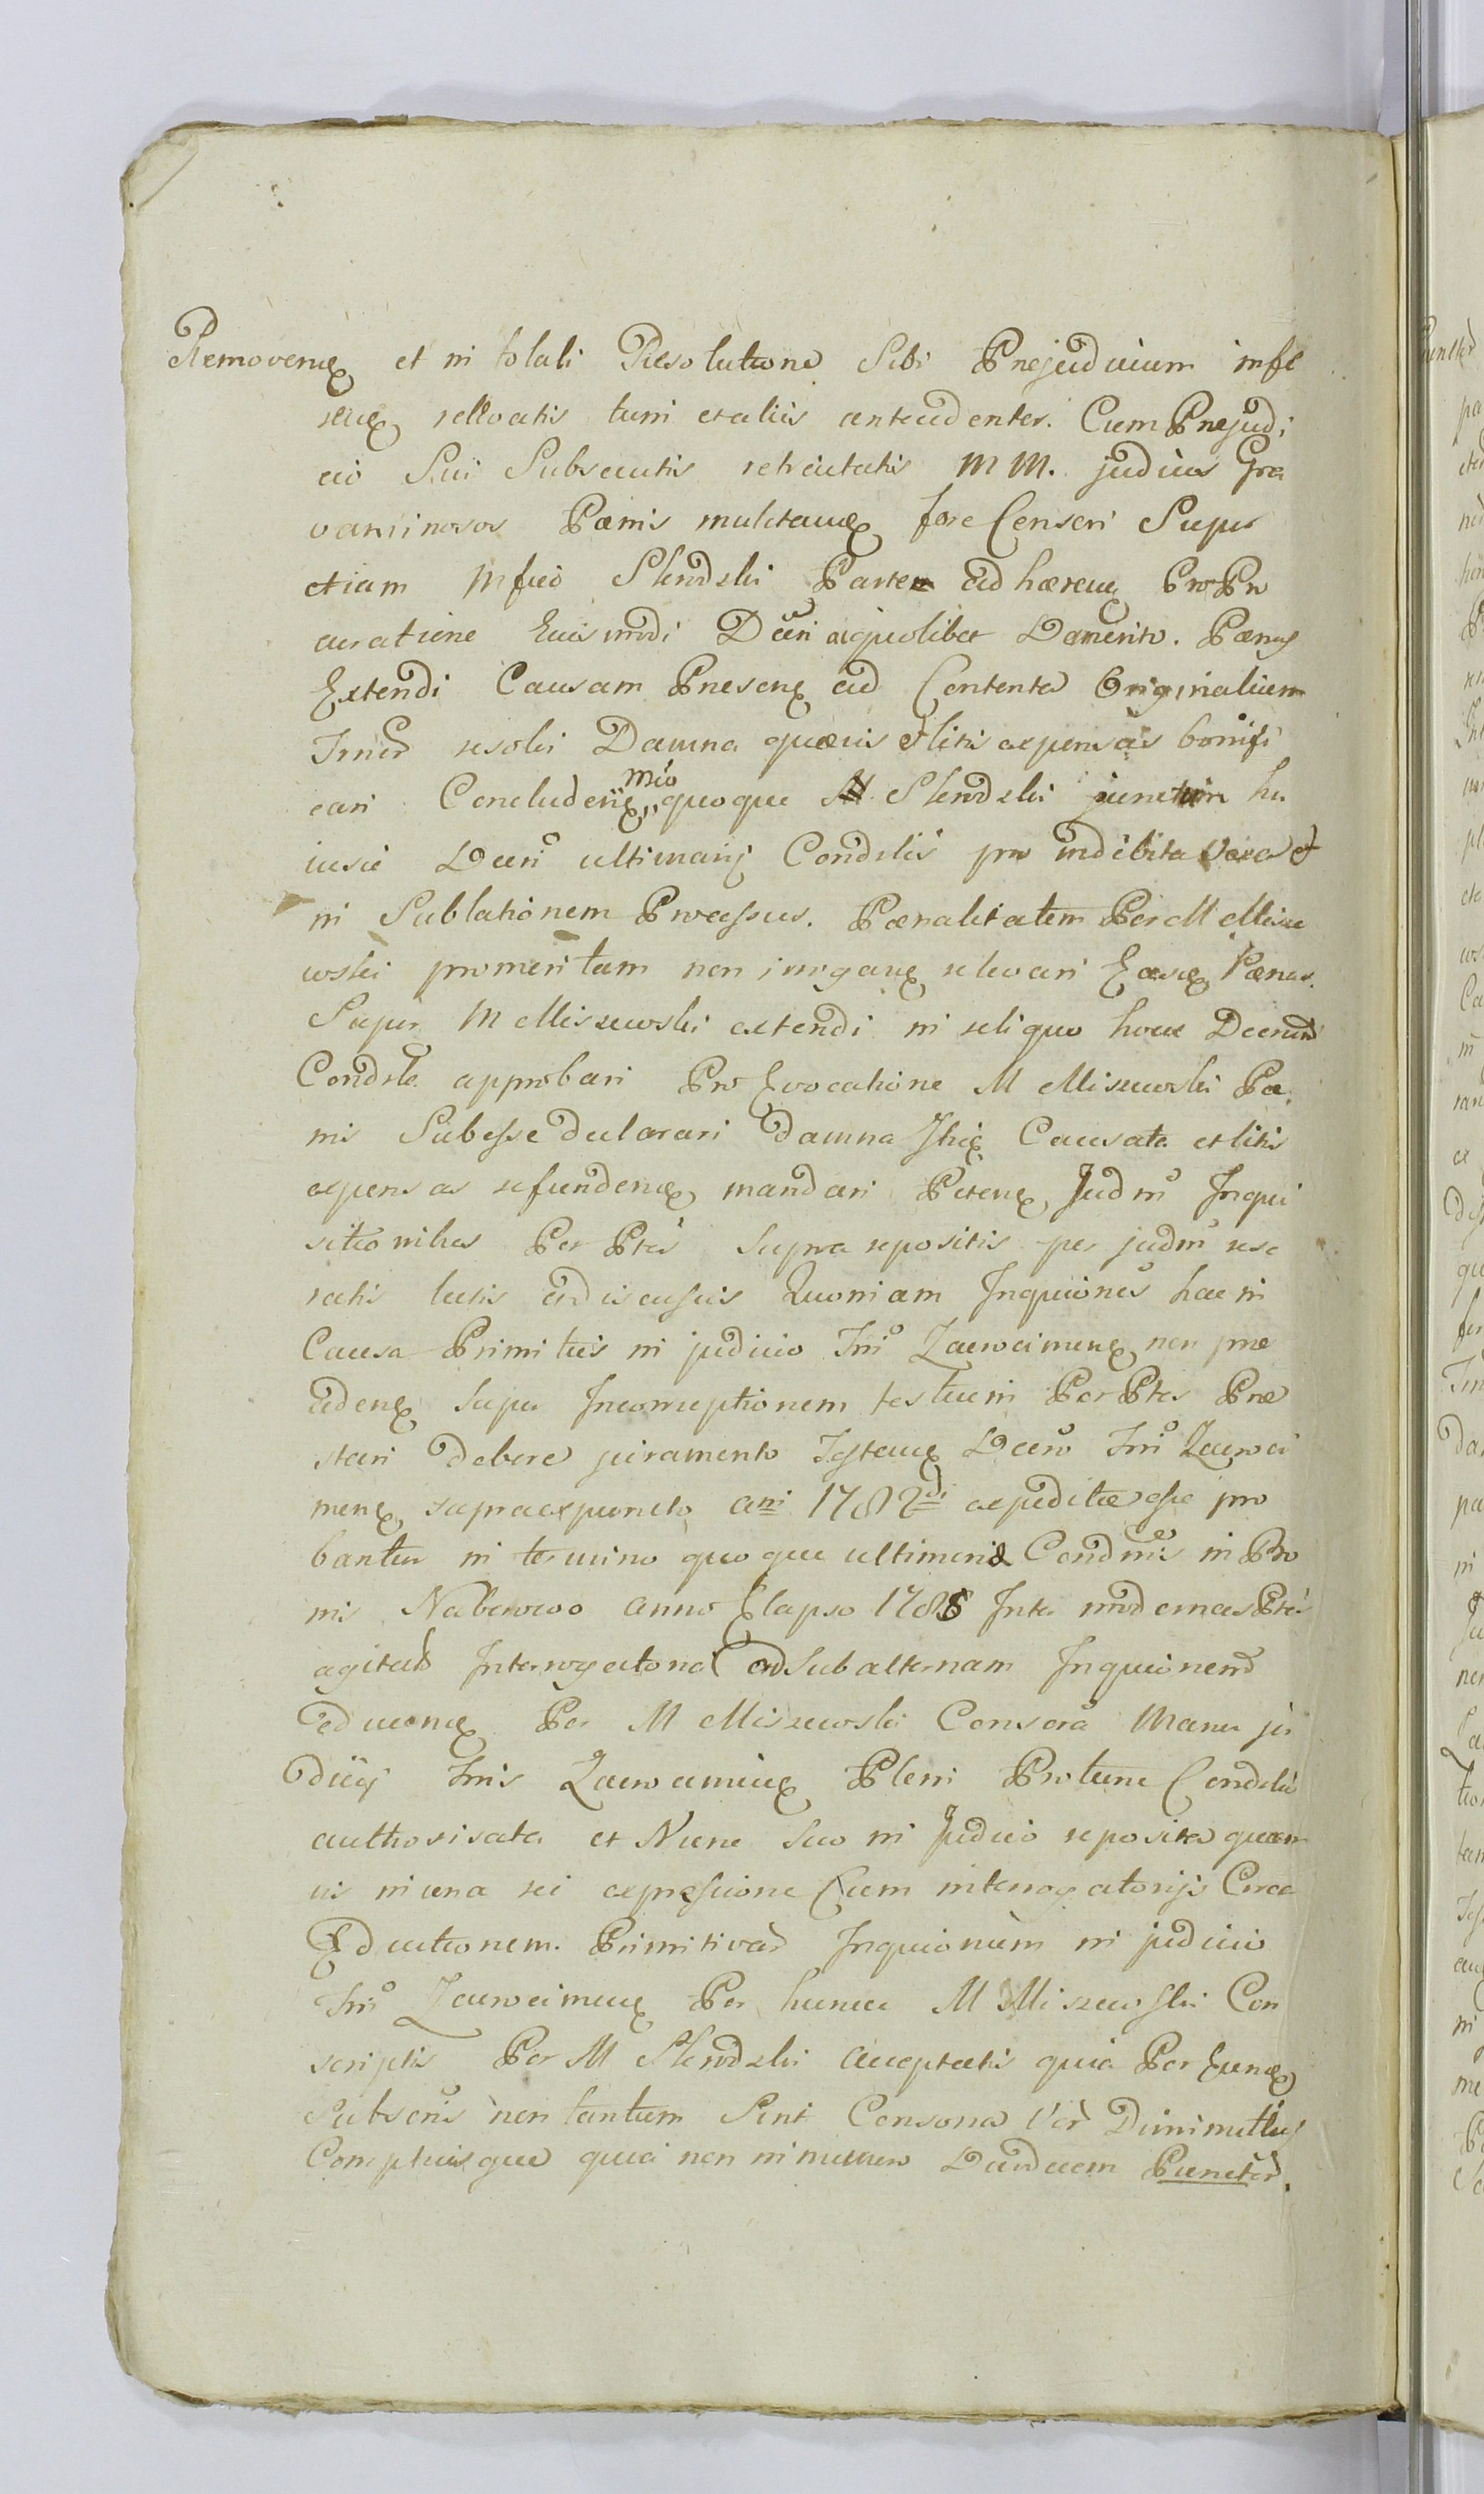 Removenꝗ et in totali Resolutione Sibi Prejudicium infe
renꝗ rellocatis tum et aliis antecedenter. Cum Prejudi
cio Sui Subsecutis retractatis MM. judices Gra
vaminosos Pænis mulctanꝗ fore Censeri Super
etiam Mfico Skrodzki Partem adhærenꝗ Pro Pro
curatione Eiusmodi Dcti Demerito. Pænas
Extendi Causam Presenꝗ ad Contenta Originalium
Trnred resolvi Damna quævis et litis expensas bonifi
cari Concludenꝗ Mco quoque Skrodzki junctim hu
iusce Dcri ultimarij Condslis pro indebita et
in Sublationem Processus. Pænalitatem Per M Miszew
wski promeritam non irroganꝗ relevari Easꝗ Pænas.
Super M Miszewski extendi in reliquo hocce Decrum
Condsle approbari Pro Evocatione M Miszewski Pæ
nis Subesse declarari Damna Causata et litis
expensas refundenꝗ mandari Petenꝗ Judm Inqui
sitionibus Per Ptes Supra repositis per judm rese
ratis lectis ac discussis Quoniam Inquiones hac in
Causa Primitus in judicio Trri Zawcimenꝗ non præ
cedenꝗ Super Incorruptionem testium Per Ptes Præ
stari debere juramento Testanꝗ Dcro Trri Zawci
menꝗ supraexpuncto ani 1782di expeditæ esse pro
bantur in termino quoque ultimario Condmis in Bo
nis Naborowo anno Elapso 1788 Inter modernas Ptes
agitato Interrogatoria ad Subalternam Inquionem
educenꝗ Per M Miszewski Conscra Manu ju
dicij Trris Zawcimenꝗ Pleni Protunc Condslis
authorisata et Nunc Suo in Judicio reposita quam
vis in una rei expressione Cum interrogatorijs Circa
Eductionem Primitivar Inquionum in judicio
Trri Zawcimenꝗ Per huncce M Miszewski Con
scriptis Per M Skrodzki acceptatis quia Per Eunꝗ
Subscris non tantum Sint Consona Ver Diminutus
Compluisque quia non in numero Duodecem Punctor.